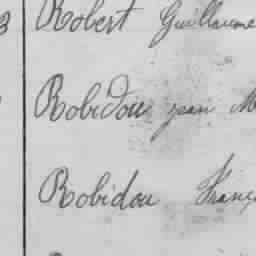 3 Robert Guillaume
Robidou jean M
Robidou Franç